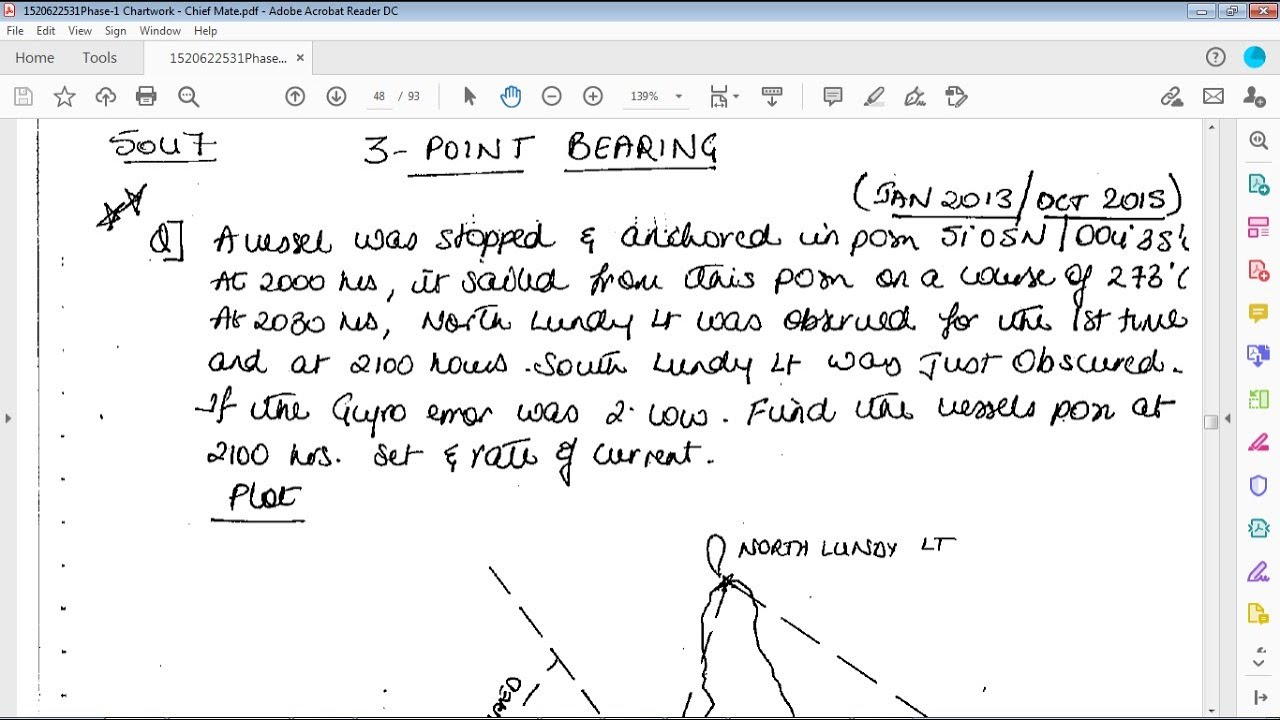 1520622531Phase-1 Chartwork - Chief Mate.pdf - Adobe Acrobat Reader DC
File Edit View Sign Window Help
Home Tools 1520622531Phase... ×
48 / 93 139%
SOU7 3-POINT BEARING
(JAN 2013/OCT 2015)
Q] A vessel was stopped & anchored in posn 51°05N/004°35'
At 2000 hrs, it sailed from this posn on a course of 273°(
At 2030 hrs, North Lundy Lt was observed for the 1st time
and at 2100 hours. South Lundy Lt was just obscured.
If the Gyro error was 2° low. Find the vessels posn at
2100 hrs. set & rate of current.
Plot
NORTH LUNDY LT